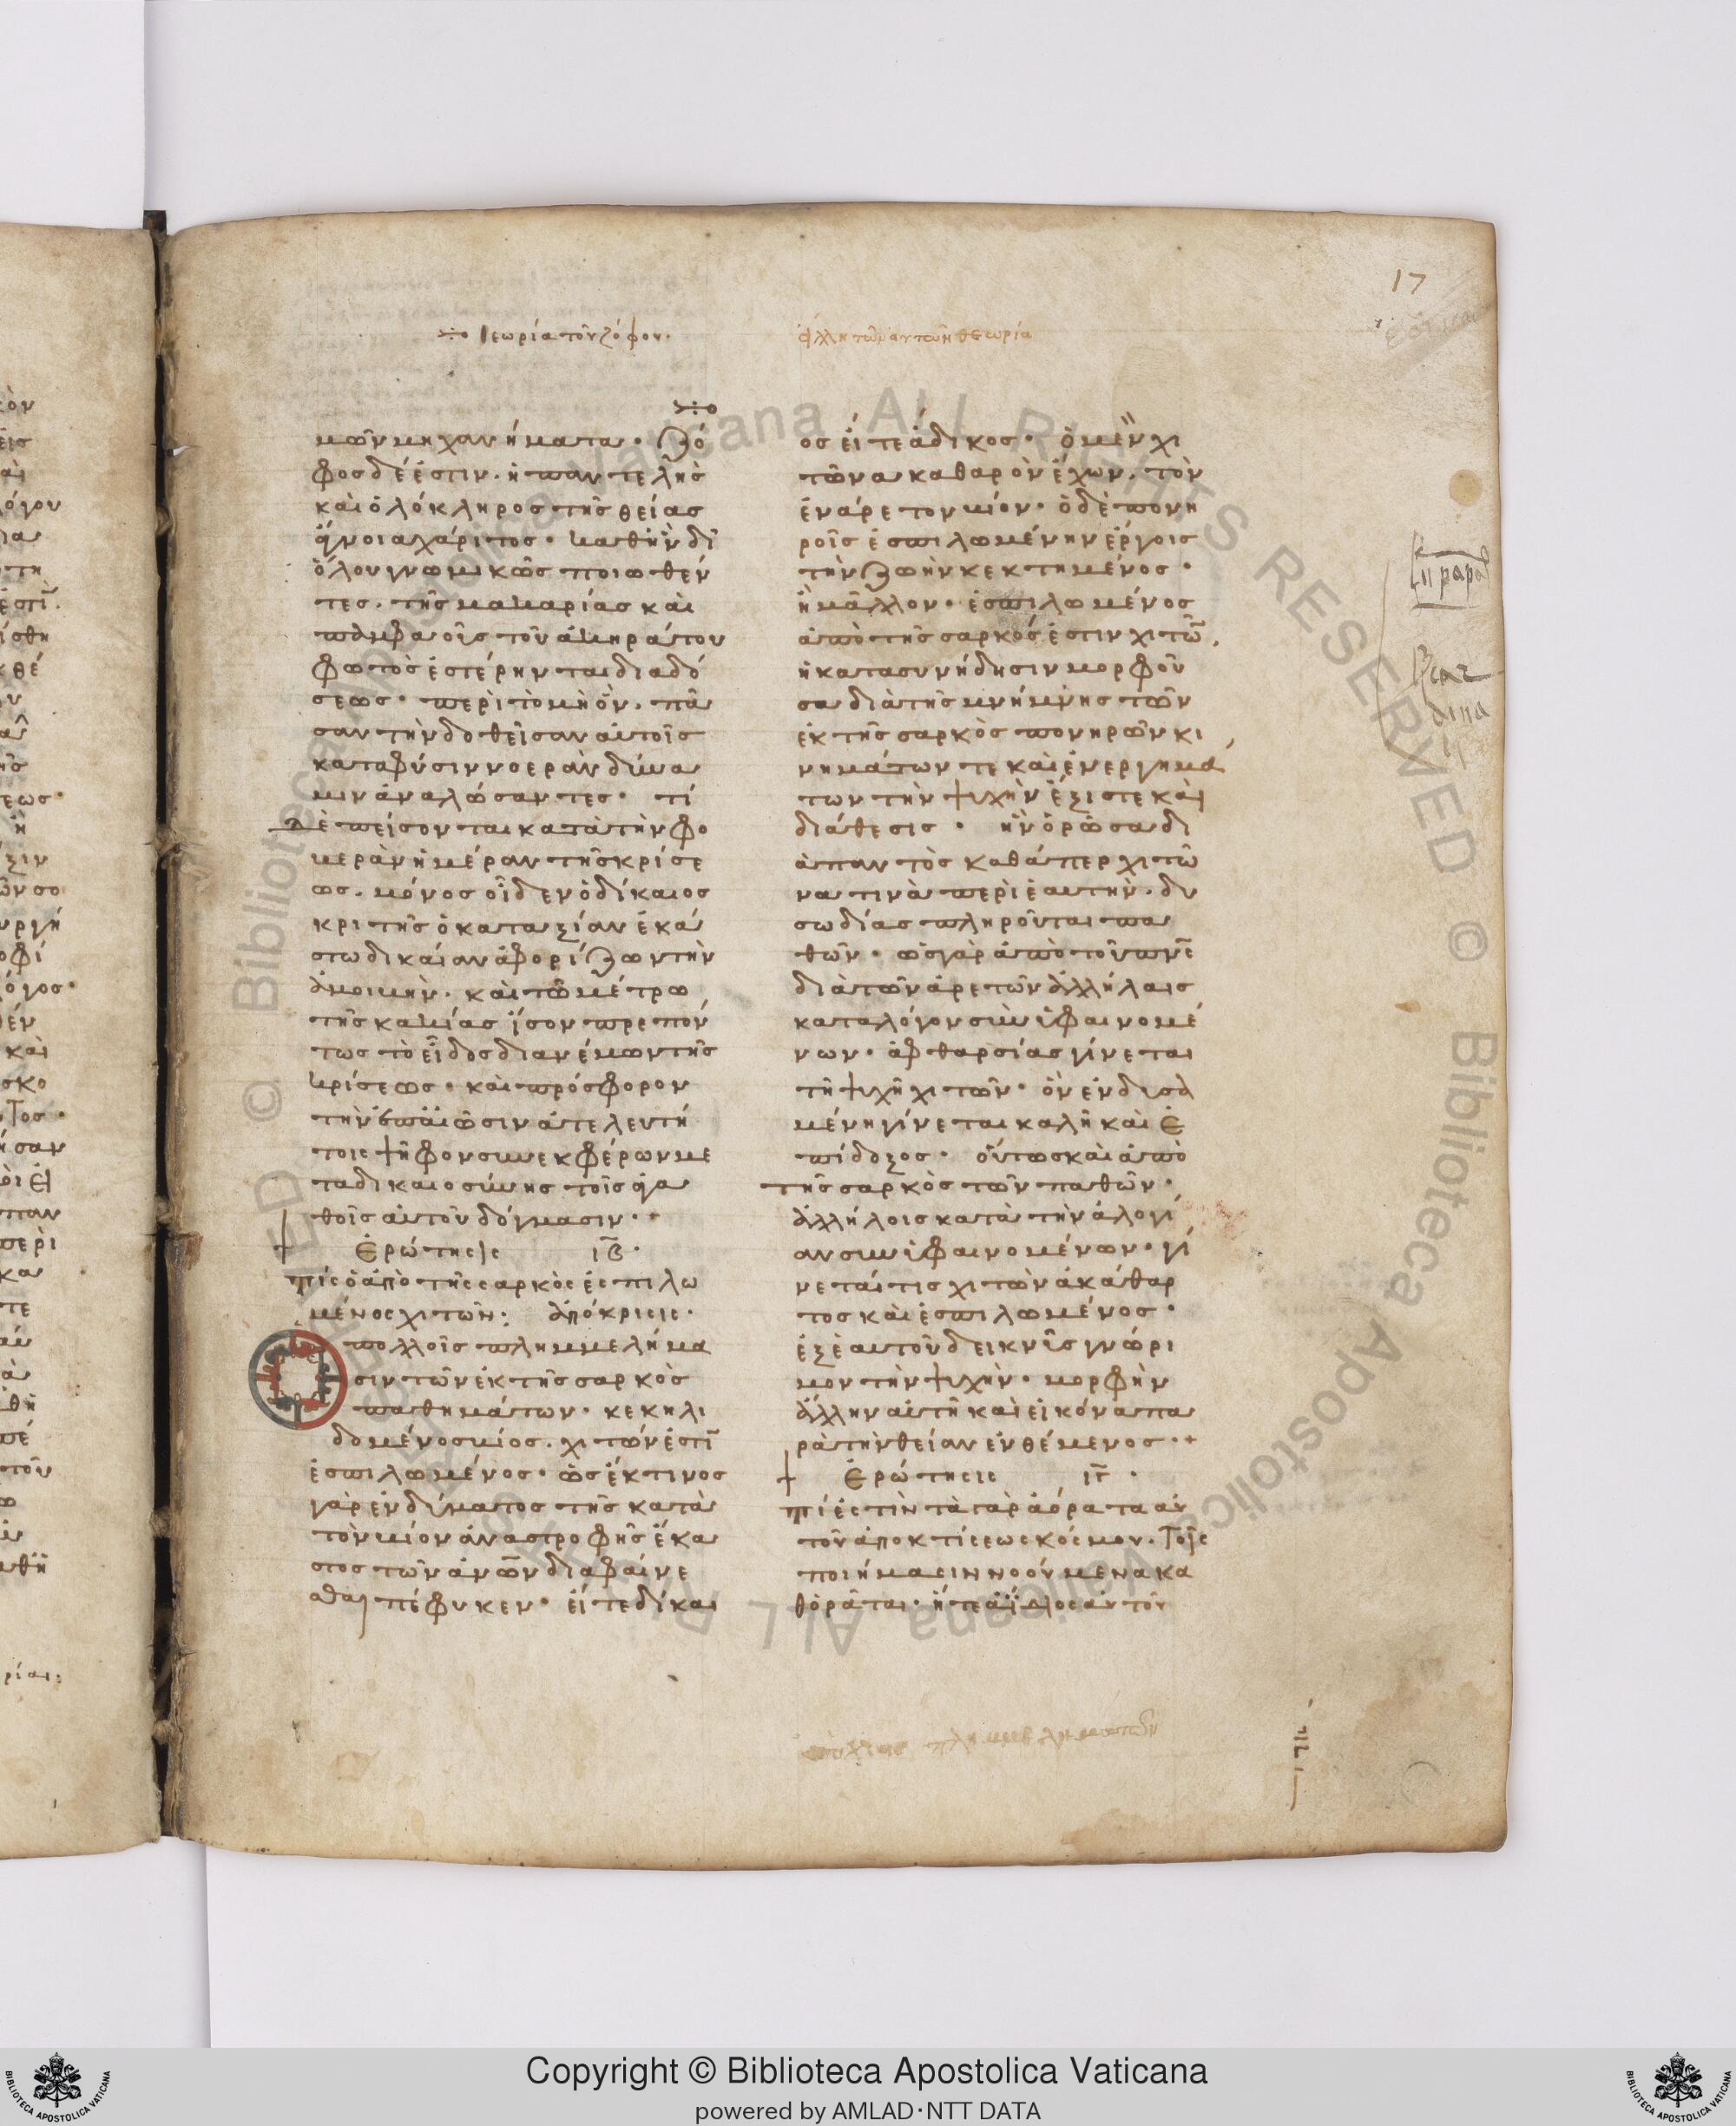 17
θεωρία τοῦ ζόφου·
ἄλλη τῶν αυτῶν θεωρία
μῶν μηχανήματα· ζό
φος δέ ἐστιν. ἡ παντελὴς
καὶ ὁλόκληρος τῆς θείας
ἄγνοια χάριτος· καθ' ἣν δι
ὅλου γνωμικῶς ποιωθέν
τες. τῆς μακαρίας καὶ
παμφαοῦς τοῦ ἀκηράτου
φωτὸς ἐστέρηνται διαδό
σεως· περὶ τὸ μὴ ὄν. πᾶ
σαν τὴν δοθεῖσαν αὐτοῖς
κατα φύσιν νοερὰν δύνα
μιν ἀναλώσαντες· τί
δὲ πείσονται κατὰ τὴν φο
βερὰν ἡμέραν τῆς κρίσε
ως. μόνος οἶδεν ὁ δίκαιος
κριτὴς ὁ καταξίαν ἑκά
στω δικαίαν ἀφορίζων τὴν
ἀμοιβὴν. καὶ τῶ μέτρω
τῆς κακίας ἴσον πρεπόν
τως τὸ εἶδος διανέμων τῆς
κρίσεως· καὶ πρόσφορον
τὴν ἐπαιῶσιν ἀτελευτή
τοις ψῆφον συνεκφέρων με
τα δικαιοσύνης τοῖς ἀγα
θοῖς αὐτοῦ δόγμασιν·
Ἐρώτησις ιβ·
τίς ὁ ἀπὸ τῆς σαρκὸς ἐσπιλω
μένος χιτών; ἀπόκρισις·
Ὁ πολλοῖς πλημμελήμα
σιν τῶν ἐκ τῆς σαρκὸς
παθημάτων. κεκηλι
δομένος βίος. χιτών ἐστῖ
ἐσπιλωμένος· ὡς ἔκ τινος
γὰρ ἐνδύματος τῆς κατὰ
τὸν βίον ἀναστροφῆς ἕκα
στος τῶν ἀνῶν διαφαίνε
σθαι πέφυκεν· εἴτε δίκαι
ος εἴτε ἄδικος· ὁ μὲν χι
τῶνα καθαρὸν ἔχων. τὸν
ἐνάρετον βίον· ὁ δὲ πονη
ροῖς ἐσπιλωμένην ἔργοις
τὴν ζωὴν κεκτημένος·
ἢ μᾶλλον· ἐσπιλωμένος
ἀπὸ τῆς σαρκός ἐστιν χιτῶ
ἡ κατα συνήδησιν μορφοῦ
σα διὰ τῆς μνήμης τῶν
ἐκ τῆς σαρκὸς πονηρῶν κι
νημάτων τε καὶ ἐνεργημά
των τὴν ψυχὴν ἕξις τε καὶ
διάθεσις· ἣν ὁρῶσα δι
ὰ παντὸς καθάπερ χιτῶ
να τινὰ περὶ ἑαυτὴν. δυ
σωδίας πληροῦται πα
θῶν· ὡς γὰρ ἀπὸ τοῦ πνς
διὰ τῶν ἀρετῶν ἀλλήλαις
κατα λόγον συνϋφαινομέ
νων. ἀφθαρσίας γίνεται
τῆ ψυχῆ χιτῶν· ὃν ἐνδυσα
μένη γίνεται καλὴ καὶ ἐ
πίδοξος· οὕτως καὶ ἀπὸ
τῆς σαρκὸς τῶν παθῶν·
ἀλλήλοις κατὰ τὴν ἀλογί
αν συνϋφαινομένων· γί
νεταί τις χιτὼν ἀκάθαρ
τος καὶ ἐσπιλωμένος·
ἐξ ἑαυτοῦ δεικνὺς γνώρι
μον τὴν ψυχὴν· μορφὴν
ἄλλην αὐτῆ καὶ εἰκόνα πα
ρὰ τὴν θείαν ἐνθέμενος·
Ἐρώτησις ιγ·
τί ἐστὶν τὰ γὰρ ἀόρατα αὐ
τοῦ ἀπο κτίσεως κόσμου. τοῖς
ποιήμασιν νοούμενα κα
θορᾶται· ἥ τε ἀΐδιος αὐτοῦ